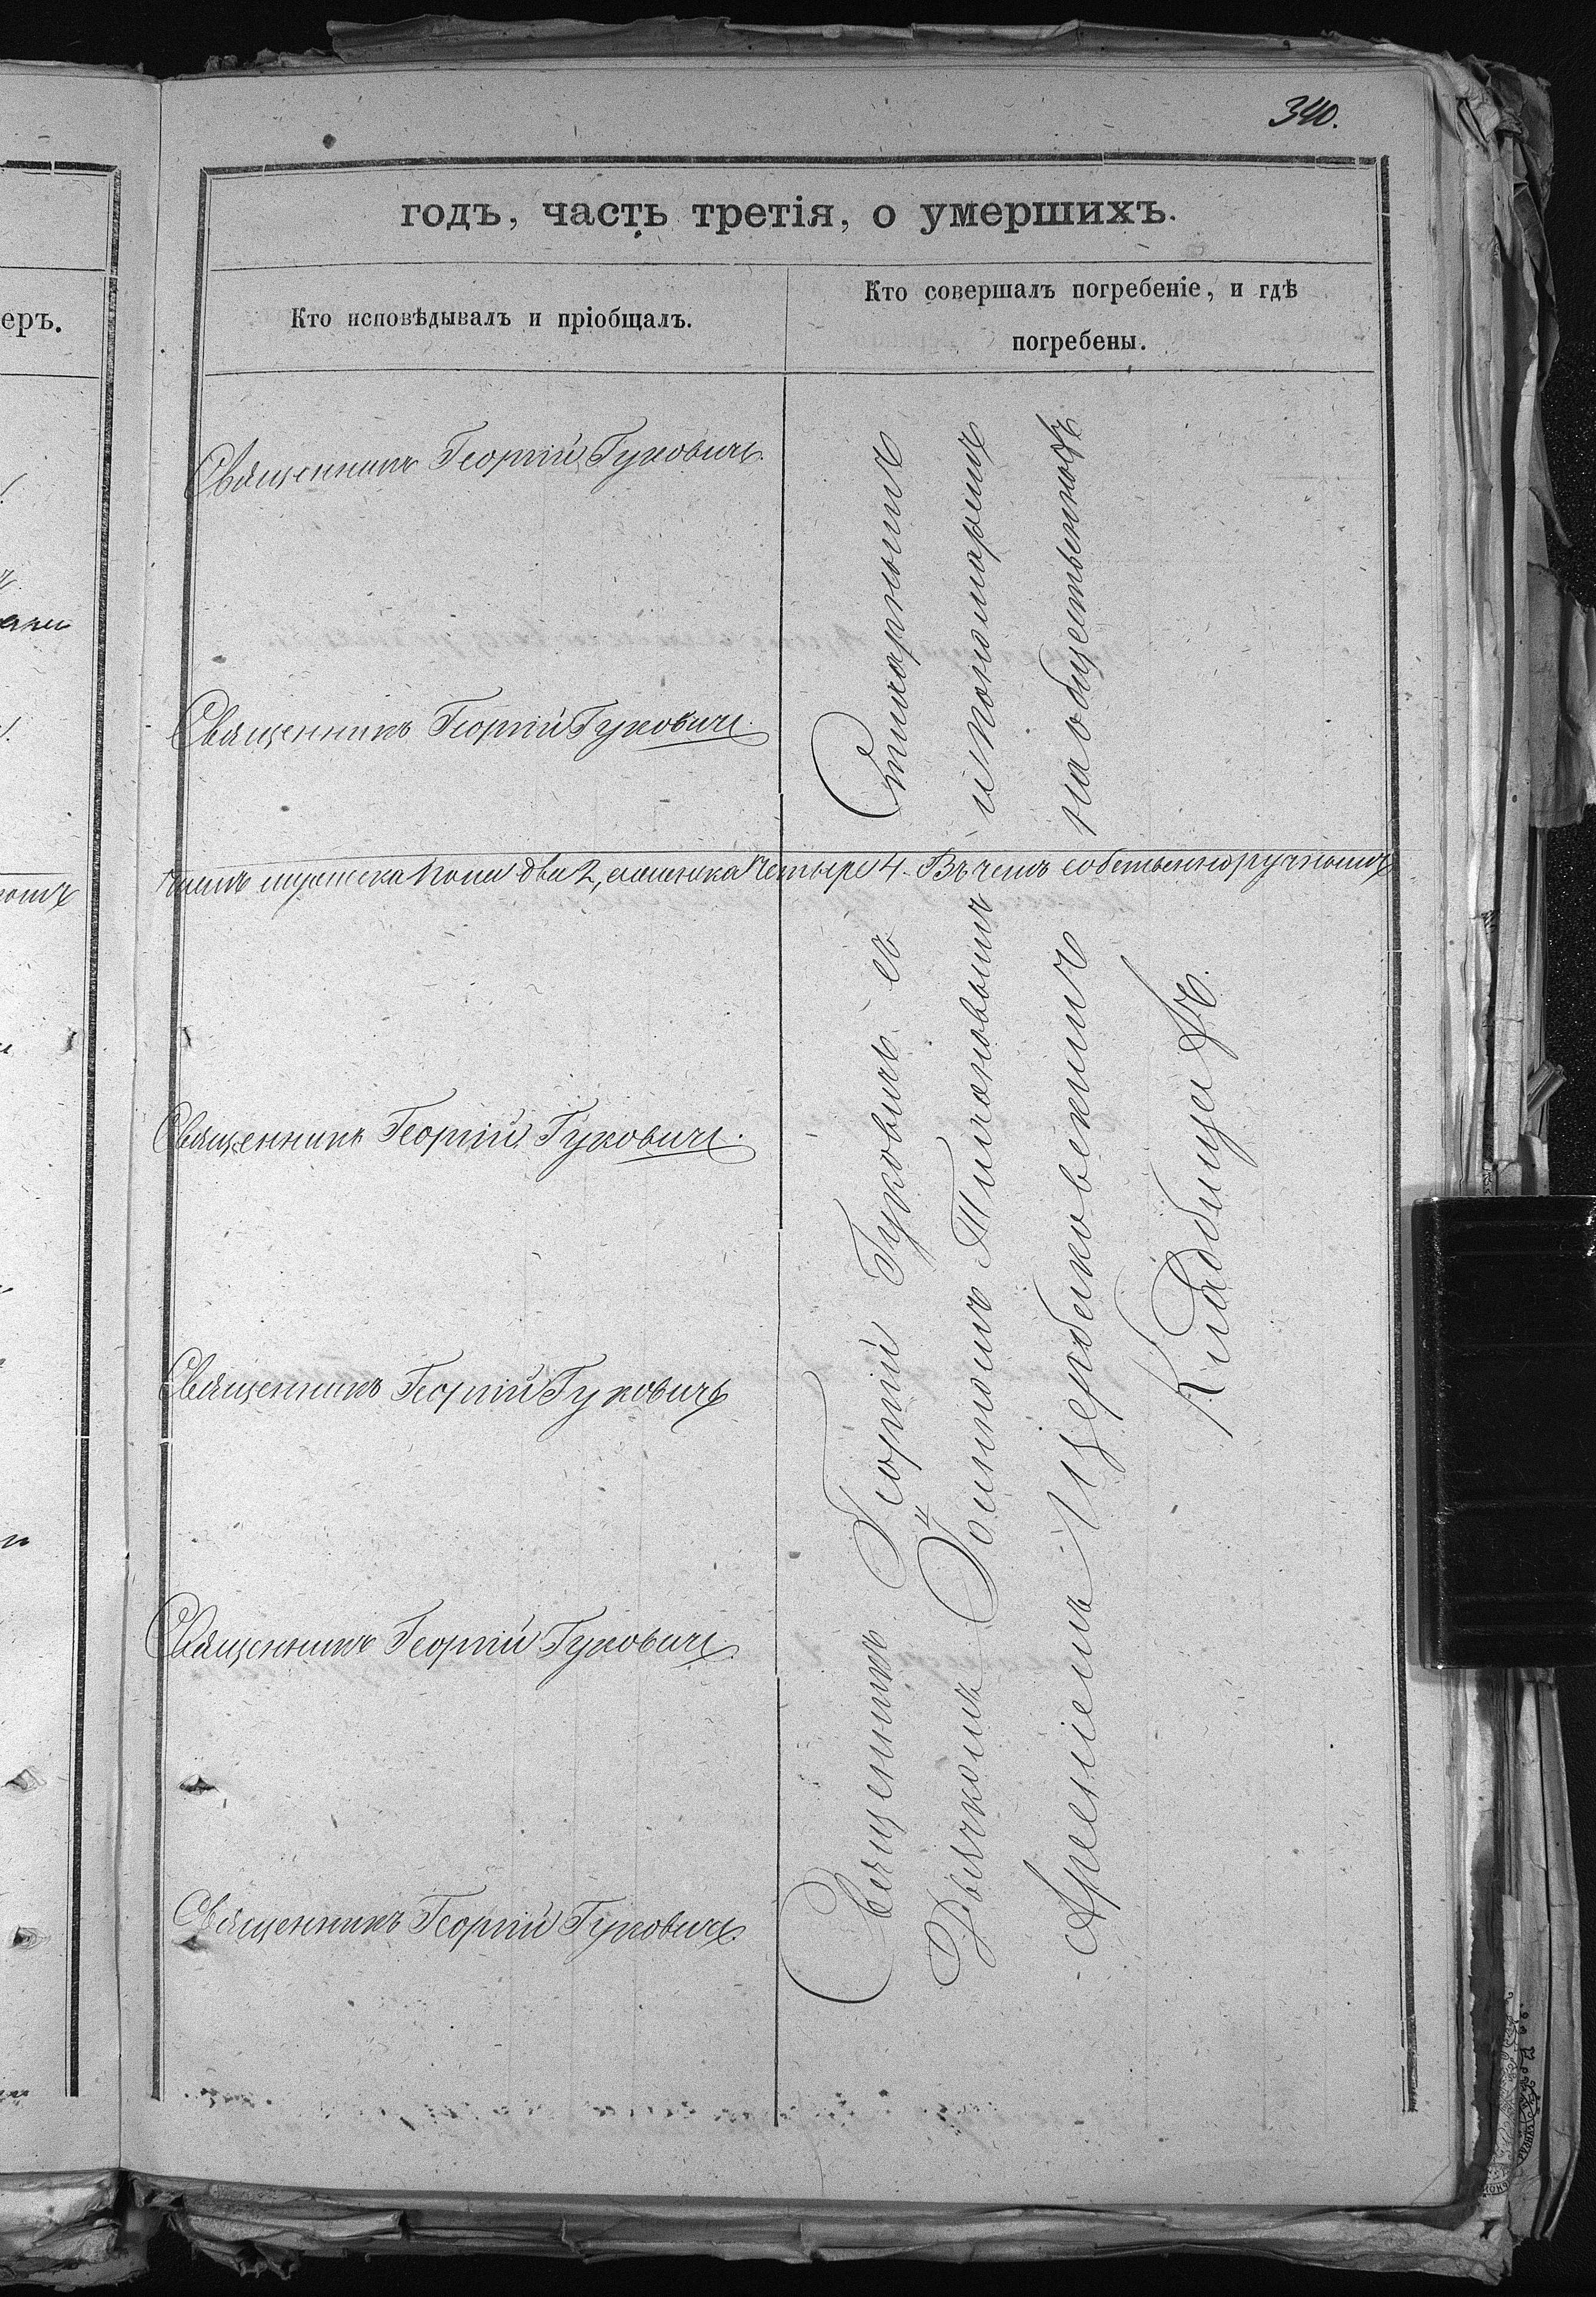 340.
годъ, часть третія, о умершихъ.
еръ.
Кто исповѣдывалъ и пріобщалъ.
Кто совершалъ погребеніе, и гдѣ
погребены.
Священникъ Георгій Гуковичъ.
Священникъ Георгій Гуковичъ.
пола два 2, женска четыре 4. Въ чемъ собственноручнымъ
Священникъ Георгій Гуковичъ.
Священникъ Георгій Гуковичъ
Священникъ Георгій Гуковичъ.
Священникъ Георгій Гуковичъ.
и пономаремъ
на общественномъ
Священникъ Георгій Гуковичъ съ
Дьячкомъ Іоанномъ Тихановымъ
Арсеніемъ Щербаковскимъ
Кладбищѣ.